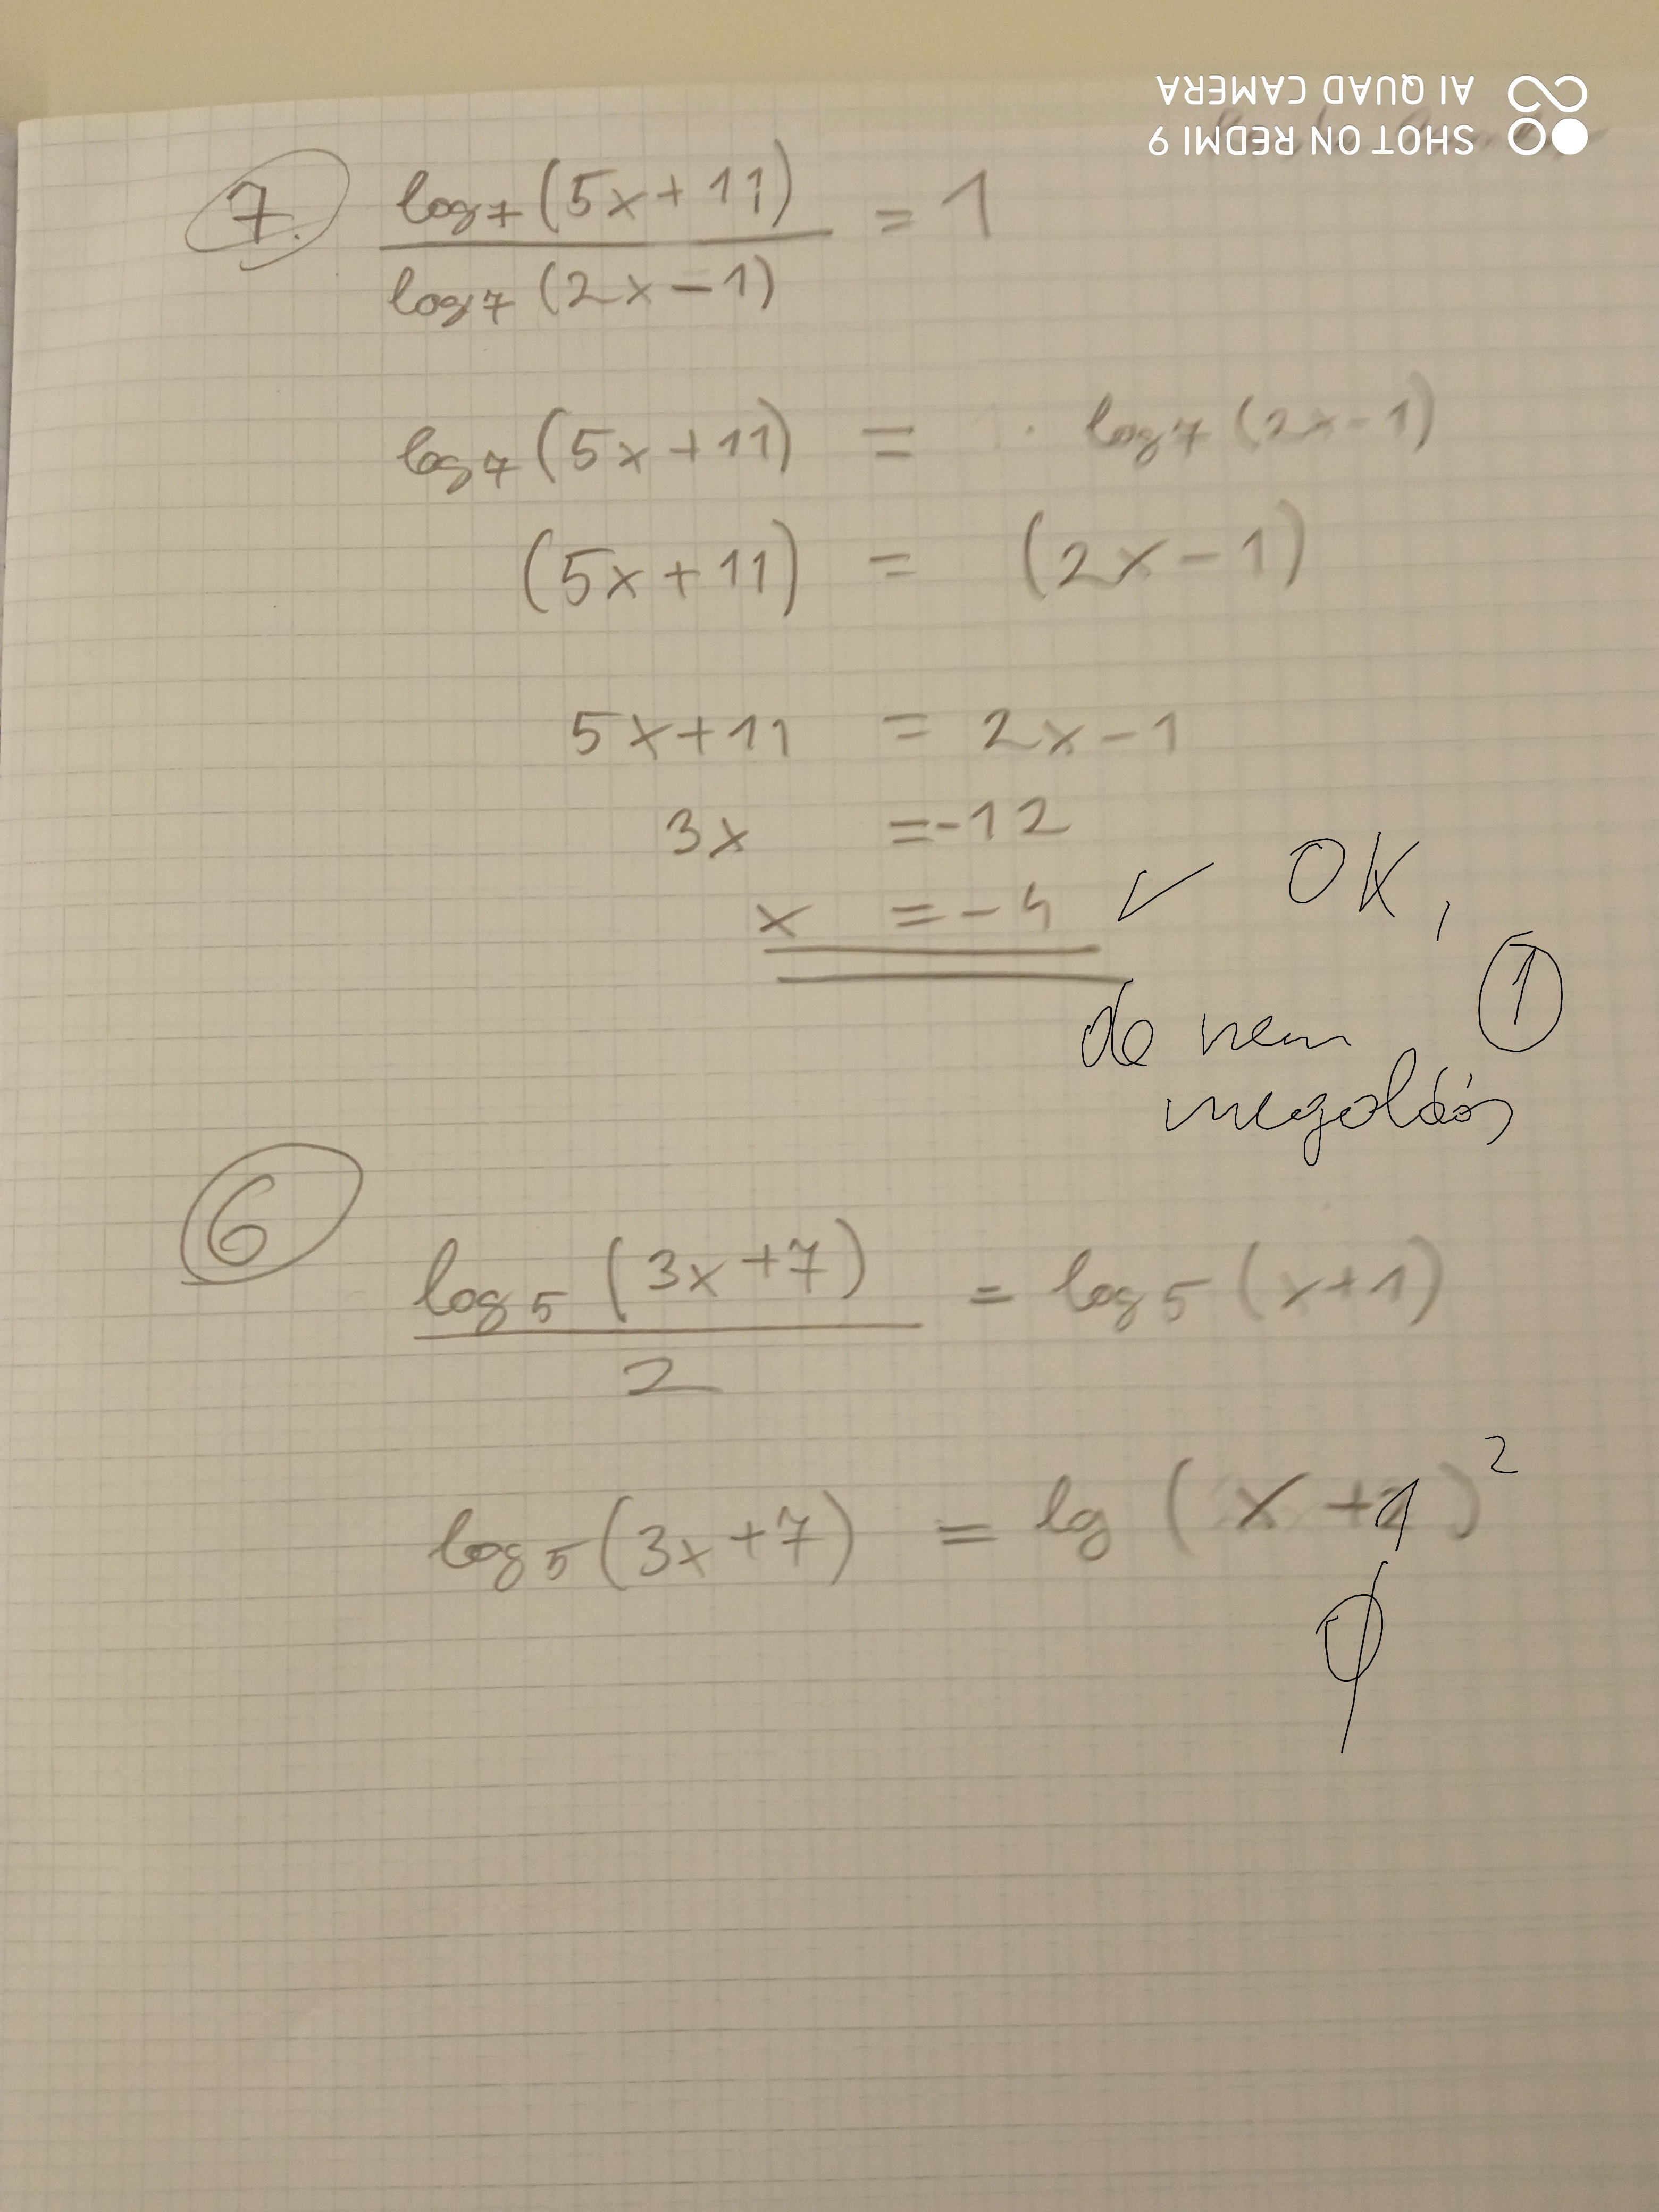 SHOT ON REDMI 9
AI QUAD CAMERA
7. log₇(5x+11) / log₇(2x-1) = 1
log₇(5x+11) = · log₇(2x-1)
(5x+11) = (2x-1)
5x+11 = 2x-1
3x = -12
x = -4 ✓ OK,
de nem ①
megoldás
6 log₅(3x+7) / 2 = log₅(x+1)
log₅(3x+7) = lg(x+1)²
∅